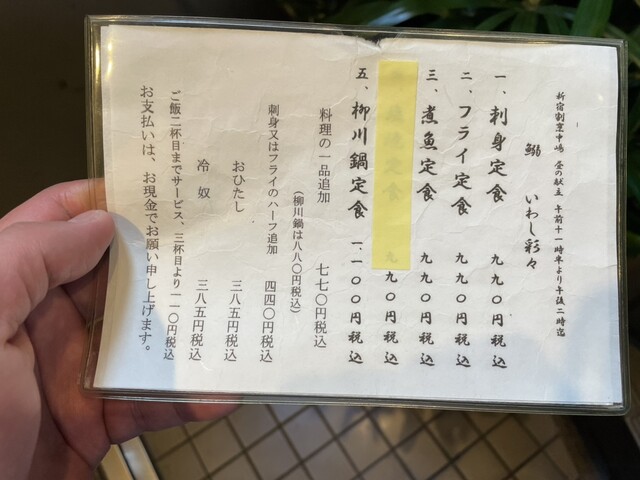 新宿割烹中嶋 昼の献立 午前十一時半より午後二時迄
鰯 いわし彩々
一、刺身定食 九九〇円税込
二、フライ定食 九九〇円税込
三、煮魚定食 九九〇円税込
定食 九九〇円税込
五、柳川鍋定食 一一〇〇円税込
料理の一品追加 七七〇円税込
(柳川鍋は八八〇円税込)
刺身又はフライのハーフ追加 四四〇円税込
おひたし 三八五円税込
冷奴 三八五円税込
ご飯二杯目までサービス、三杯目より一一〇円税込
お支払いは、お現金でお願い申し上げます。